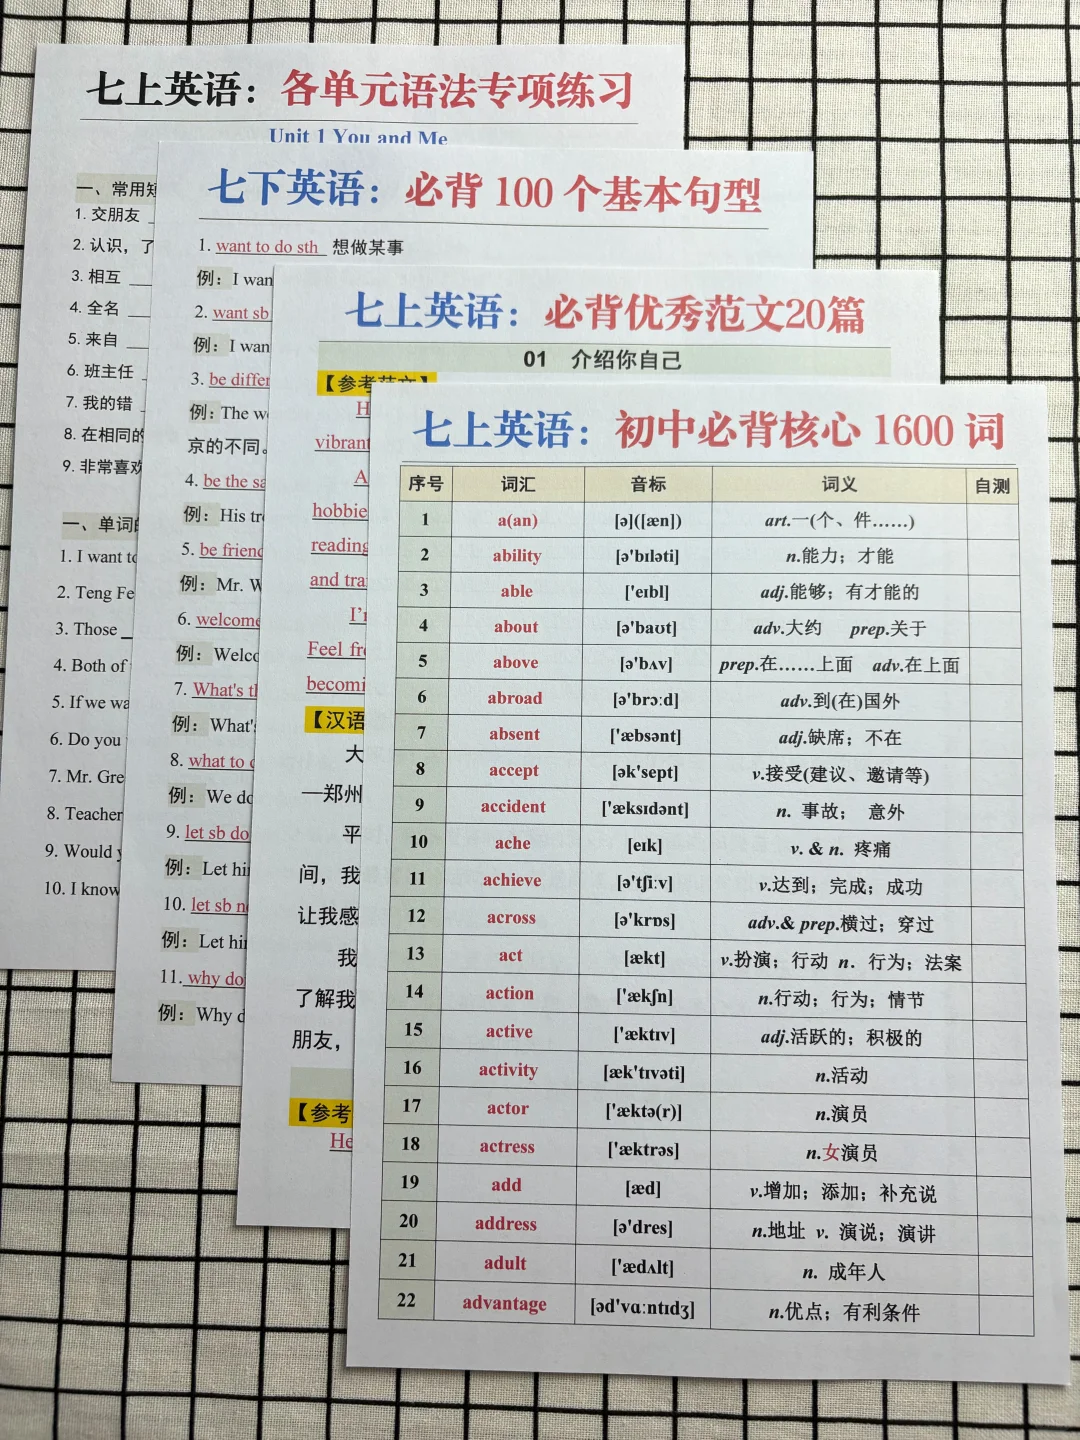 七上英语：各单元语法专项练习
Unit 1 You and Me
一、常用短
1. 交朋友
2. 认识，了
3. 相互
4. 全名
5. 来自
6. 班主任
7. 我的错
8. 在相同的
9. 非常喜欢
一、单词的
1. I want to
2. Teng Fe
3. Those
4. Both of
5. If we wa
6. Do you
7. Mr. Gre
8. Teacher
9. Would y
10. I know
七下英语：必背 100 个基本句型
1. want to do sth 想做某事
例：I wan
2. want sb
例：I wan
3. be differ
例：The we
京的不同。
4. be the sa
例：His tr
5. be friend
例：Mr. W
6. welcome
例：Welco
7. What's th
例：What's
8. what to d
例：We do
9. let sb do
例：Let hi
10. let sb n
例：Let hi
11. why do
例：Why d
七上英语：必背优秀范文20篇
01 介绍你自己
【参考范文】
H
vibrant
A
hobbie
reading
and tra
I'm
Feel fr
becomi
【汉语
大
—郑州
平
间，我
让我感
我
了解我
朋友，
【参考
He
七上英语：初中必背核心 1600 词
序号 词汇 音标 词义 自测
1 a(an) [ə]([æn]) art.一(个、件……)
2 ability [ə'bɪləti] n.能力；才能
3 able ['eɪbl] adj.能够；有才能的
4 about [ə'baʊt] adv.大约 prep.关于
5 above [ə'bʌv] prep.在……上面 adv.在上面
6 abroad [ə'brɔːd] adv.到(在)国外
7 absent ['æbsənt] adj.缺席；不在
8 accept [ək'sept] v.接受(建议、邀请等)
9 accident ['æksɪdənt] n. 事故； 意外
10 ache [eɪk] v. & n. 疼痛
11 achieve [ə'tʃiːv] v.达到；完成；成功
12 across [ə'krɒs] adv.& prep.横过；穿过
13 act [ækt] v.扮演；行动 n. 行为；法案
14 action ['ækʃn] n.行动；行为；情节
15 active ['æktɪv] adj.活跃的；积极的
16 activity [æk'tɪvəti] n.活动
17 actor ['æktə(r)] n.演员
18 actress ['æktrəs] n.女演员
19 add [æd] v.增加；添加；补充说
20 address [ə'dres] n.地址 v. 演说；演讲
21 adult ['ædʌlt] n. 成年人
22 advantage [əd'vɑːntɪdʒ] n.优点；有利条件